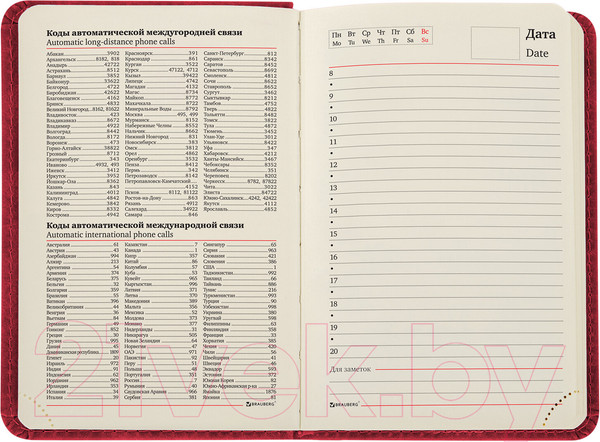 Коды автоматической междугородней связи
Automatic long-distance phone calls
Абакан 3902
Архангельск 8182, 818
Анадырь 42722
Астрахань 8512
Барнаул 3852
Белгород 4722
Биробиджан 42622
Благовещенск 4162
Брянск 4832
Великий Новгород 8162, 81622
Владивосток 423
Владикавказ 8672
Владимир 4922
Волгоград 8442
Вологда 8172
Воронеж 473
Горно-Алтайск 38822
Грозный 8712
Екатеринбург 343
Иваново 4932, 493
Ижевск 3412
Иркутск 3952
Йошкар-Ола 8362
Казань 843
Калининград 4012
Калуга 4842
Кемерово 3842
Киров 8332
Кострома 4942
Красноярск 391
Краснодар 861
Курган 3522
Курск 47122, 4712
Кызыл 39422
Липецк 4742
Магадан 4132
Магас 8734
Майкоп 8772
Махачкала 8722
Минеральные Воды 8792
Москва 495, 499
Мурманск 8152
Набережные Челны 8552
Нальчик 8662
Нижний Новгород 831
Новосибирск 383
Омск 3812
Орел 4862
Оренбург 3532
Пенза 8412
Пермь 342
Петрозаводск 8142
Петропавловск-Камчатский
4152
Псков 8112, 81122
Ростов-на-Дону 863
Рязань 4912
Салехард 34922
Самара 846
Санкт-Петербург 812
Саранск 8342
Саратов 8452
Севастополь 8692
Смоленск 4812
Сочи 8622
Ставрополь 8652
Симферополь 3652
Сыктывкар 8212
Тамбов 4752
Тверь 4822
Тольятти 8482
Томск 3822
Тула 4872
Тюмень 3452
Улан-Удэ 3012
Ульяновск 8422
Уфа 347
Хабаровск 4212
Ханты-Мансийск 3467
Чебоксары 8352
Челябинск 351
Череповец 8202
Черкесск 8782, 87822
Чита 3022
Элиста 84722
Южно-Сахалинск 4242, 42422
Якутск 4112
Ярославль 4852
Коды автоматической международной связи
Automatic international phone calls
Австралия 61
Австрия 43
Азербайджан 994
Алжир 213
Аргентина 54
Армения 374
Беларусь 375
Бельгия 32
Болгария 359
Бразилия 55
Ватикан 396
Великобритания 44
Венгрия 36
Вьетнам 84
Германия 49
Греция 30
Грузия 995
Дания 45
Египет 20
Израиль 972
Индия 91
Иордания 962
Испания 34
Италия 39
Казахстан 7
Канада 1
Кипр 357
Китай 86
Колумбия 57
Куба 53
Кувейт 965
Кыргызстан 996
Латвия 371
Литва 370
Македония 389
Мексика 52
Молдова 373
Монако 377
Нидерланды 31
Новая Зеландия 64
Норвегия 47
ОАЭ 971
Пакистан 92
Польша 48
Португалия 351
Россия 7
Румыния 40
Саудовская Аравия 966
Сербия 381
Сингапур 65
Сирия 963
Словакия 421
Словения 386
США 1
Таджикистан 992
Таиланд 66
Тайвань 886
Тунис 216
Туркменистан 993
Турция 90
Узбекистан 998
Украина 380
Уругвай 598
Филиппины 63
Финляндия 358
Франция 33
Хорватия 385
Чехия 420
Чили 56
Швейцария 41
Швеция 46
Эквадор 593
Эстония 372
Южная Корея 82
Ямайка 1876
Япония 81
BRAUBERG
Пн Вт Ср Чт Пт Сб Вс
Mo Tu We Th Fr Sa Su
Дата
Date
8
9
10
11
12
13
14
15
16
17
18
19
20
Для заметок
BRAUBERG
21vek.by